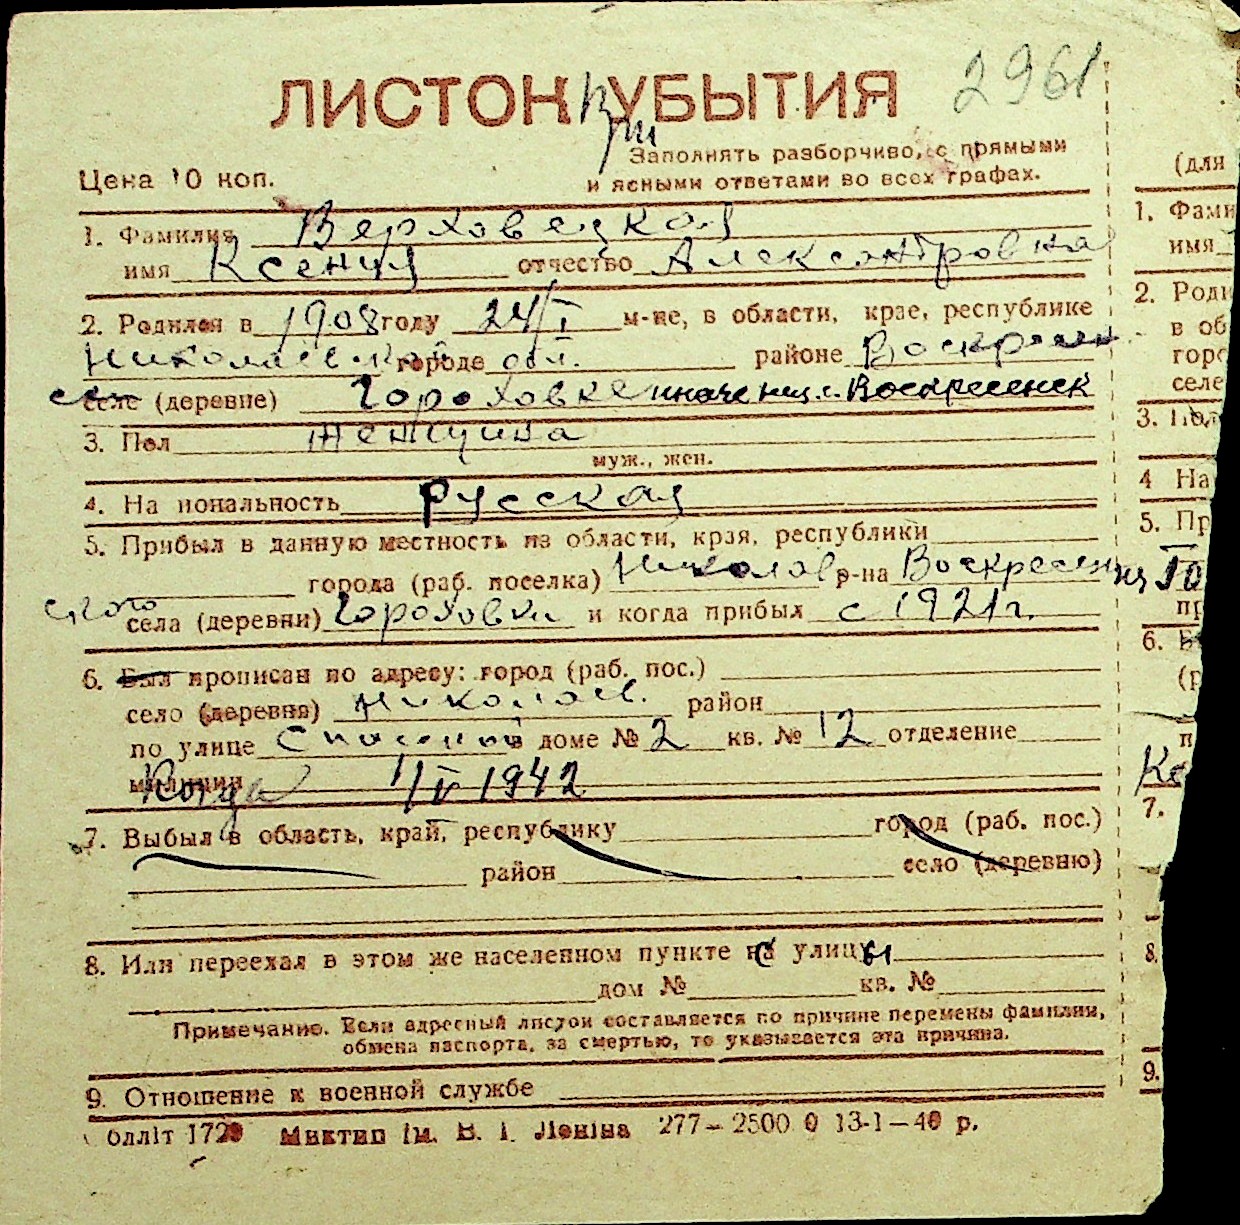 2961
ЛИСТОК УБЫТИЯ
Заполнять разборчиво, с прямыми
Цена 10 коп. и ясными ответами во всех графах.
1. Фамилия Верховецкая
имя Ксения отчество Александровна
2. Родился в 1908 году 24/I м-це, в области, крае, республике
Николаевской городе обл. районе Воскресен
селе (деревне) Гороховке иначе Воскресенск
3. Пол женщина
муж., жен.
4. На иональность русская
5. Прибыл в данную местность из области, края, республики
города (раб. поселка) Николаев. р-на Воскресен
ского села (деревни) Гороховки и когда прибыл с 1921 г.
6. Был прописан по адресу: город (раб. пос.)
село (деревня) Николаев. район
по улице Спасской в доме № 2 кв. № 12 отделение
милиции Когда 1/IV 1942
7. Выбыл в область, край, республику город (раб. пос.)
район село (деревню)
8. Или переехал в этом же населенном пункте с улицы
дом № кв. №
Примечание. Если адресный листок составляется по причине перемены фамилии,
обмена паспорта, за смертью, то указывается эта причина.
9. Отношение к военной службе
блліт 1729 Миктип ім. В. І. Леніна 277—2500 0 13-1—40 р.
(для
1. Фами
имя
2. Роди
в об
горо
селе
3. Пол
4 На
5. Пр
пр
6.
(р
п
7.
8.
9.